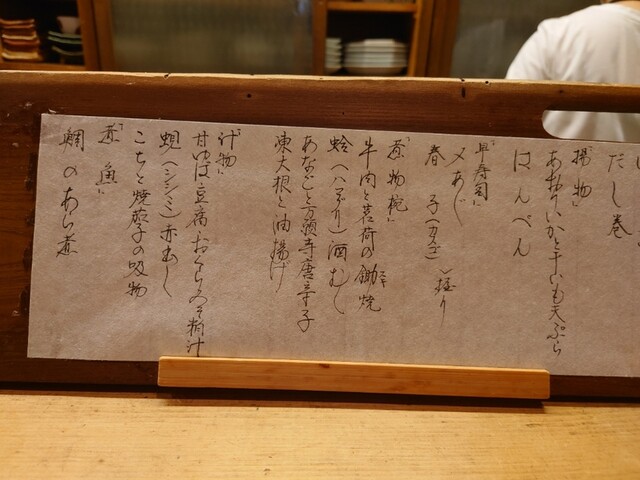 だし巻
揚物
あおりいかと干いも天ぷら
はんぺん
早寿司
〆あじ
春子(カスゴ)
握り
煮物椀
牛肉と茗荷の鋤焼
蛤(ハマグリ)酒むし
あなごと万願寺唐辛子
凍大根と油揚げ
汁物
甘ゆば豆腐・おくらみそ粕汁
蜆(シジミ)赤出し
こちと焼茄子の吸物
煮魚
鯛のあら煮